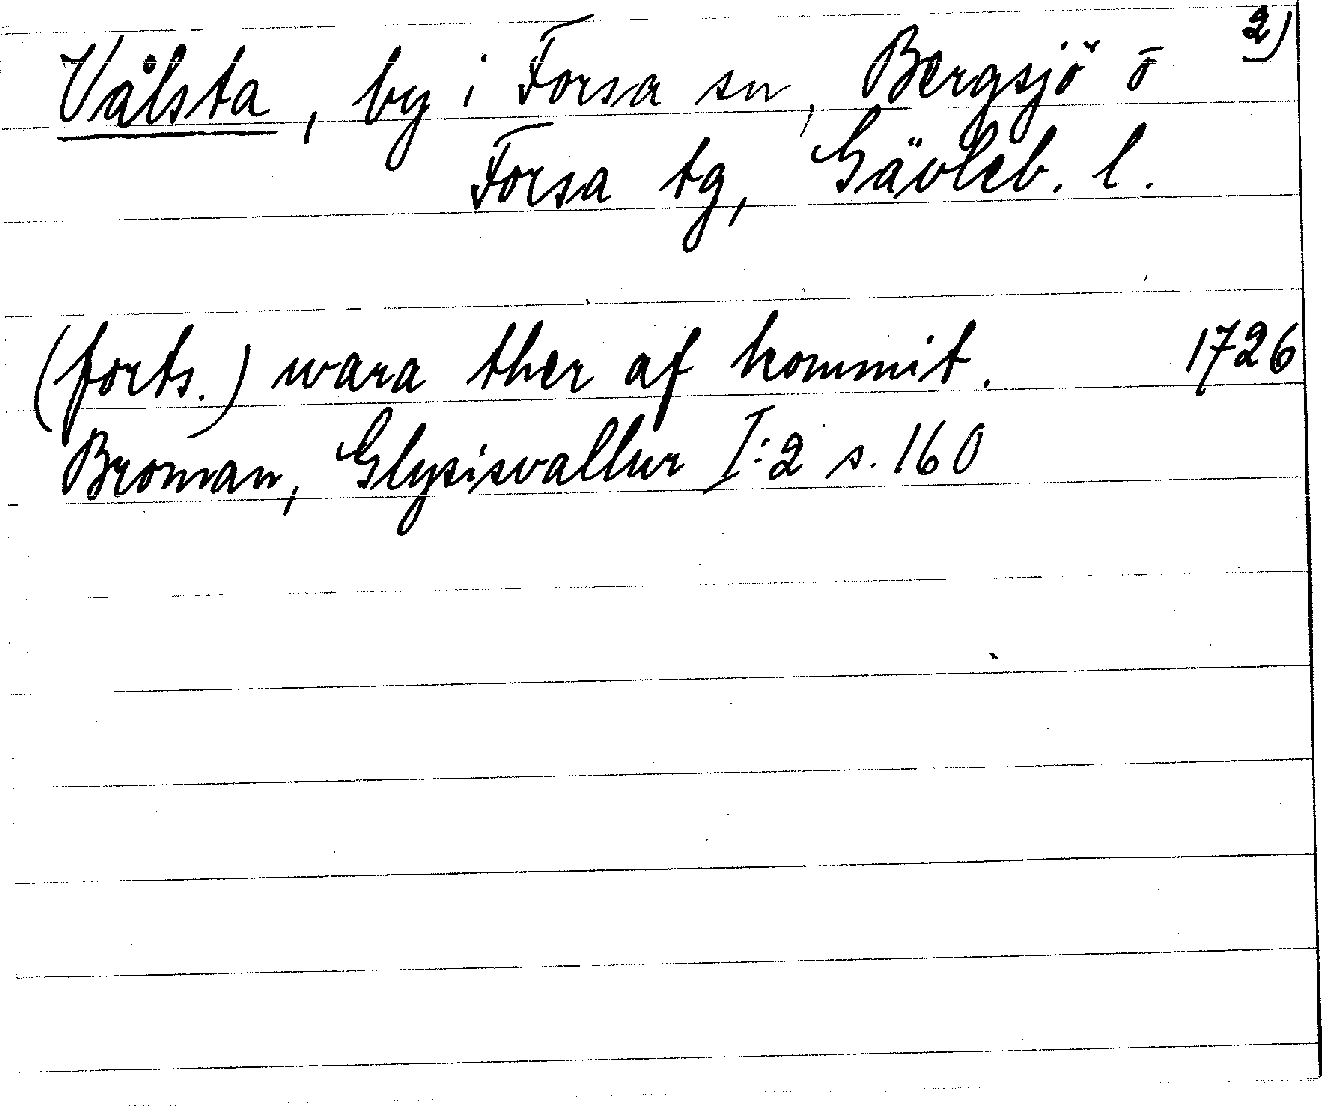 2)
Vålsta, by i Forsa sn, Bergsjö o
Forsa tg, Gävleb. l.
(forts.) wara ther af kommit. 1726
Broman, Glysisvallur I:2 s. 160